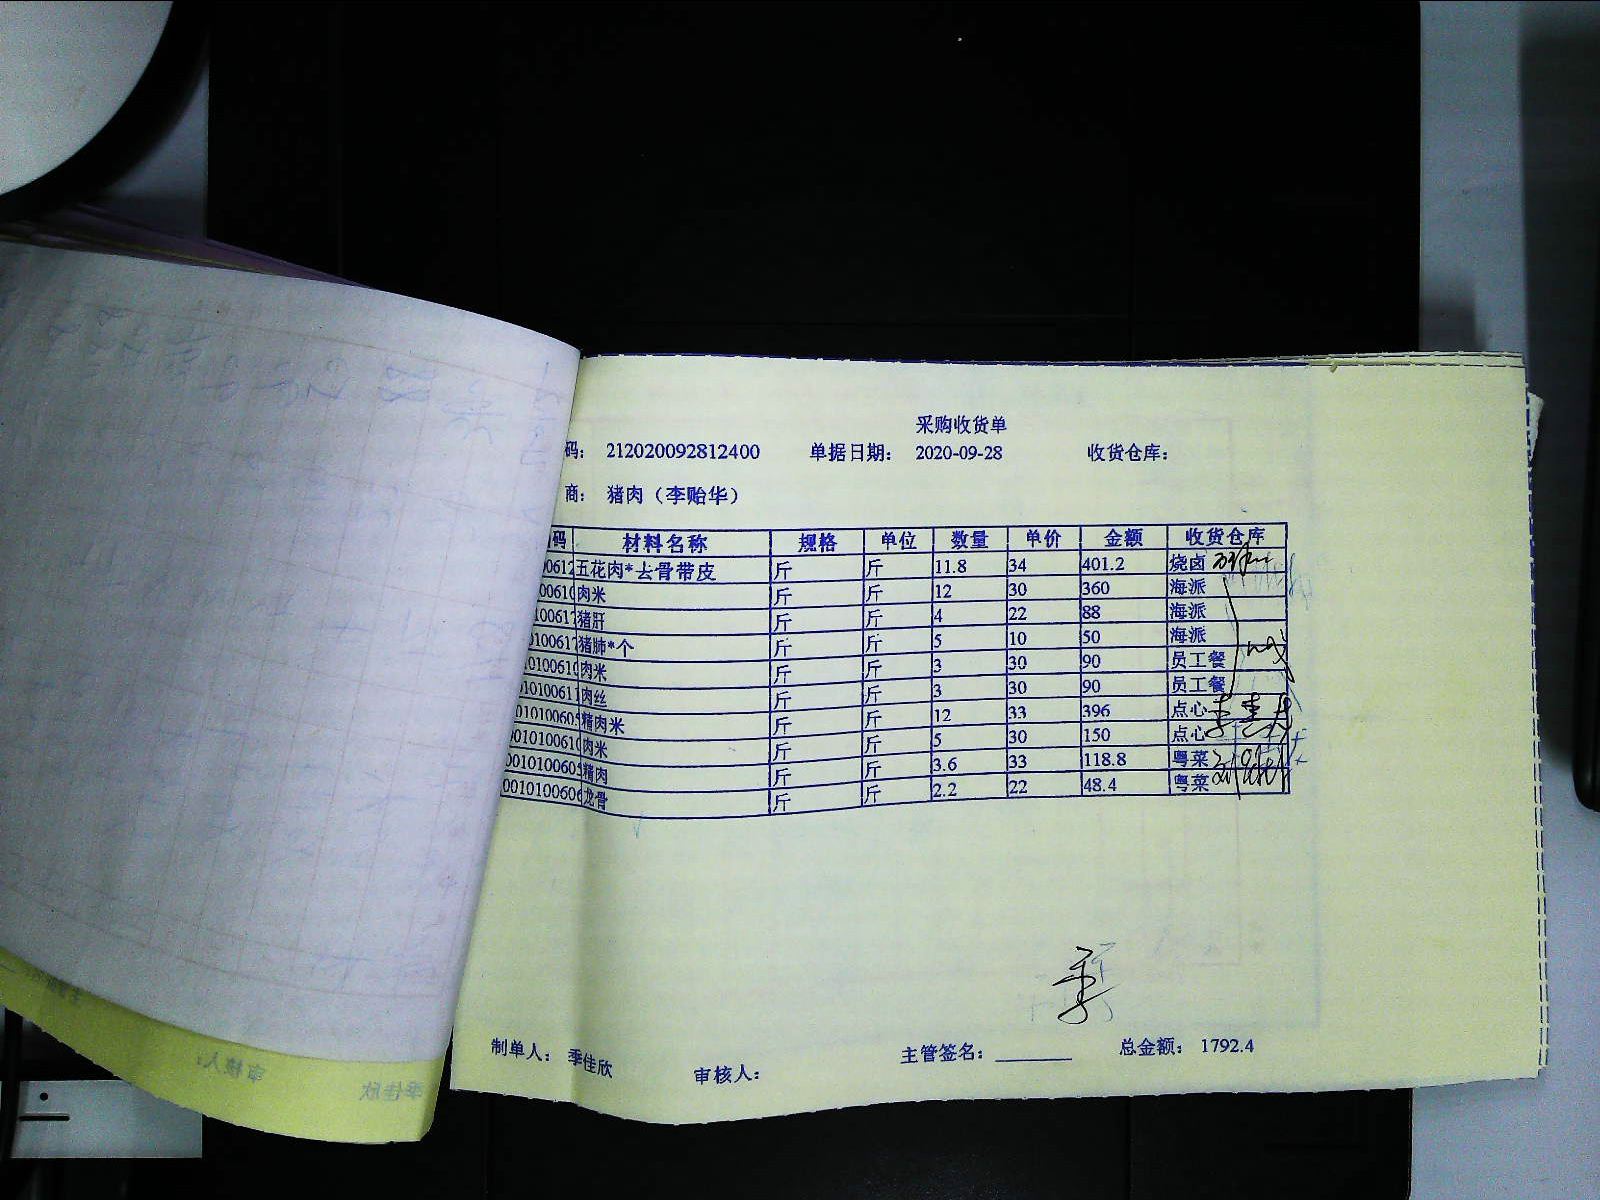 采购收货单
码： 212020092812400 单据日期： 2020-09-28 收货仓库：
商： 猪肉（李贻华）
码 材料名称 规格 单位 数量 单价 金额 收货仓库
00612 五花肉*去骨带皮 斤 斤 11.8 34 401.2 烧卤
00610 肉米 斤 斤 12 30 360 海派
100617 猪肝 斤 斤 4 22 88 海派
0100617 猪肺*个 斤 斤 5 10 50 海派
10100610 肉米 斤 斤 3 30 90 员工餐
10100611 肉丝 斤 斤 3 30 90 员工餐
010100605 精肉米 斤 斤 12 33 396 点心
0010100610 肉米 斤 斤 5 30 150 点心
0010100605 精肉 斤 斤 3.6 33 118.8 粤菜
0010100606 龙骨 斤 斤 2.2 22 48.4 粤菜
制单人： 季佳欣 审核人： 主管签名： 总金额： 1792.4
审核人：
季佳欣